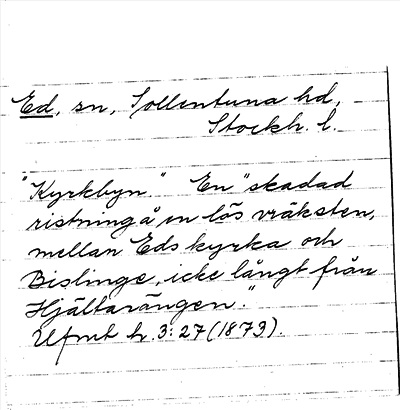 Ed, sn, Sollentuna hd,
Stockh. l.
"Kyrkbyn." En "skadad
ristning å en lös vräksten,
mellan Eds kyrka och
Bislinge, icke långt från
Hjältarängen."
Ufmt h. 3: 27 (1873).